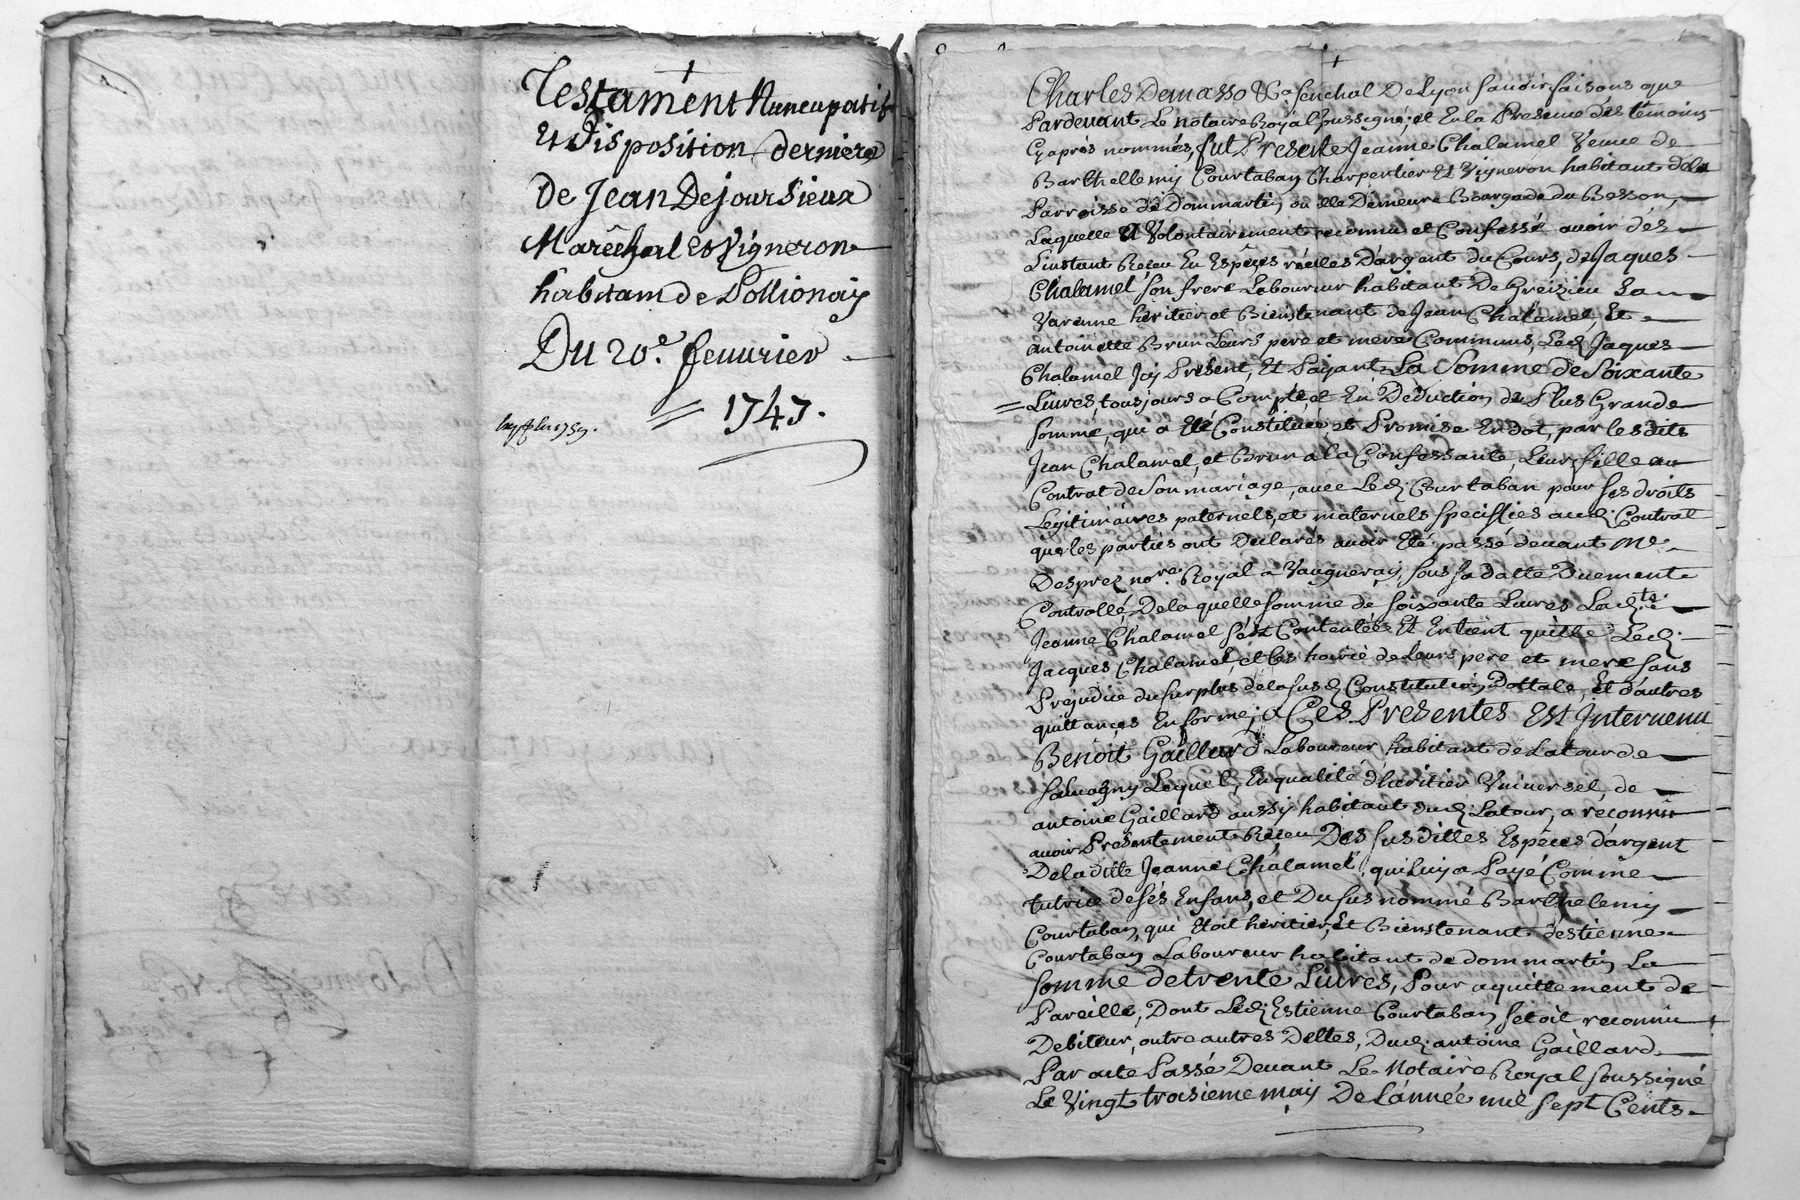 Testament Nuncupatif
Et Disposition derniere
de Jean Dejoursieux
Marêchal et Vigneron
habitant de Pollionay
Du 20.e feuurier
1747.
Charles Demasso &a senéchal De Lyon sauoir faisons que
Pardeuant Le notaire Royal soussigné, et En la Presence des temoins
Cy aprés nommés, fut Presente Jeanne Chalamel Veuue de
Barthellemy Courtaban Charpentier Et Vigneron habitant dela
Parroisse de Dommartin, ou elle Demeure Bourgade du Besson,
Laquelle a Volontairement reconnu et Confessé auoir dés
L'instant Receu En Espéces réelles D'argent du Cours, de Jaques
Chalamel son frere Laboureur habitant De Greizieu La
Varenne héritier et Bienstenant de Jean Chalamel, Et
antoinette Brun Leurs pere et mere Communs, Led. Jaques
Chalamel Icy Présent, Et Payant La Somme de Soixante
Liures, tousjours a Compte, et En Déduction de Plus Grande
somme, qui a Eté Constituée et Promise En dot, par lesdits
Jean Chalamel, et Brun a la Confessante, Leur fille au
Contrat de son mariage, auec Led. Courtaban pour ses droits
Légitimaires paternels, et maternels specifiés aud. Contrat
que les parties ont Déclarés auoir Eté passé deuant Me.
Desprez no.re Royal a Vaugneray, sous sa datte Duement
Controllé, De la quelle somme de soixante Liures Lad.te
Jeanne Chalamel s'est Contentée Et En tient quitte Led.
Jacques Chalamel, et les hoirie de Leurs pere et mere sans
Préjudice du surplus de la susd. Constitution Dottale, Et d'autres
quittances En forme; a Ces Presentes Est Interuenu
Benoit Gaillard Laboureur habitant de Latour de
saluagny Lequel, En qualité d'héritier Vniuersel, de
antoine Gaillard aussy habitant dud. Latour, a reconnu
auoir Présentement Receu Des susdittes Espéces d'argent
De laditte Jeanne Chalamel, qui Luy a Payé Comme
tutrice de sés Enfans, et Du sus nommé Barthelemy
Courtaban, qui Etoit héritier, Et Bienstenant d'estienne
Courtaban Laboureur habitant de dommartin La
somme de trente Liures, Pour aquittement de
Pareille, Dont Led. Estienne Courtaban setoit reconnu
Debiteur, outre autres Dettes, Dud. antoine Gaillard
Par acte Passé Deuant Le Notaire Royal soussigné
Le Vingt troisieme may De L'année mil sept Cents